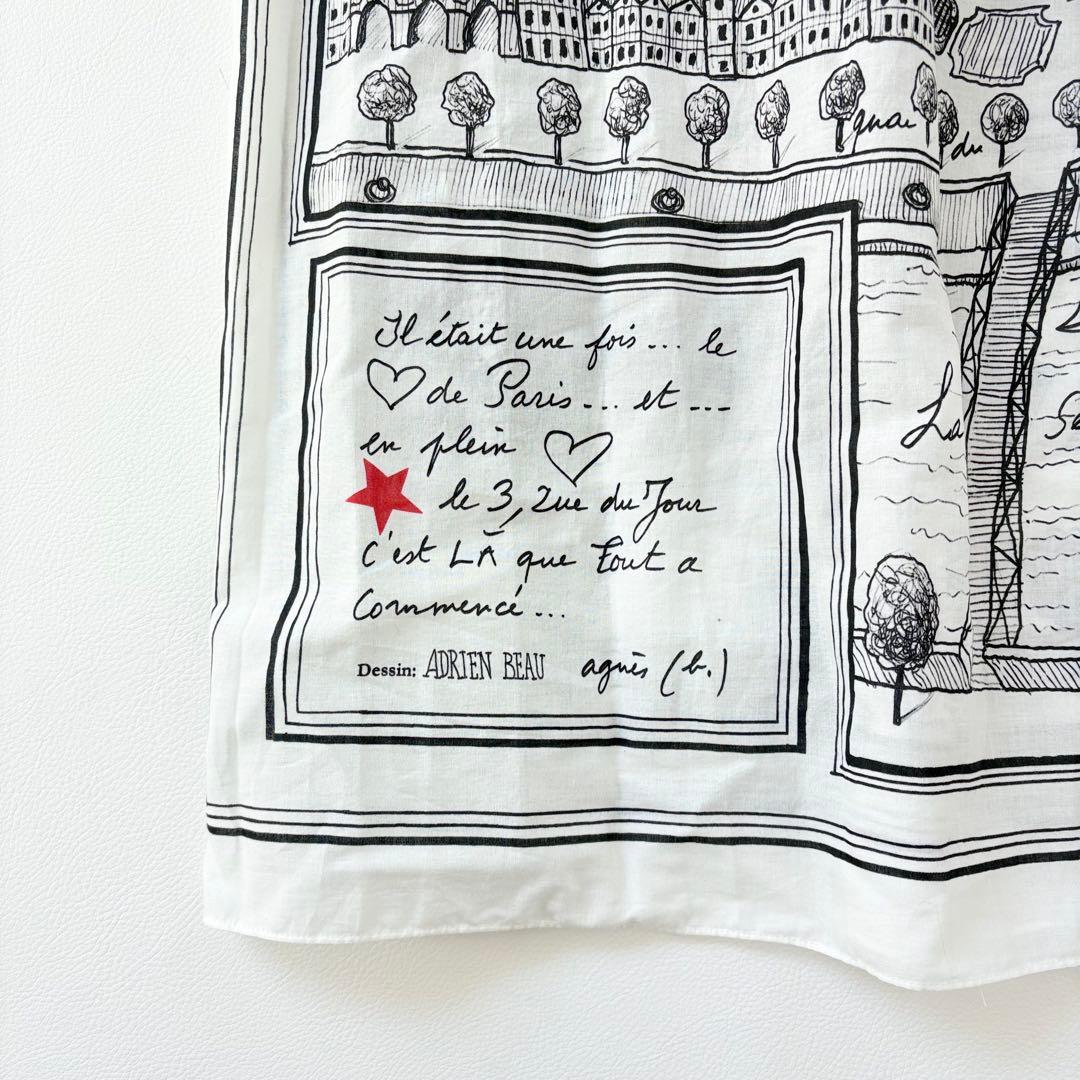 quai
du
La
Il était une fois... le
♡ de Paris... et...
en plein ♡
★ le 3, rue du Jour
C'est LÀ que tout a
Commencé...
Dessin: ADRIEN BEAU agnès (b.)